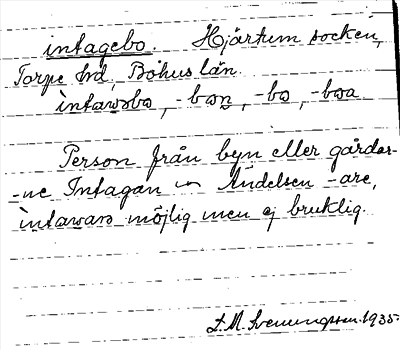 intagebo. Hjärtum socken,
Torpe hd, Bohuslän.
ìntawəbo, -bən, -bo, -boa
Person från byn eller gårdar-
-ne Intagan. Ändelsen -are,
ìntawarə möjlig men ej bruklig.
D. M. Svenningsson. 1935.